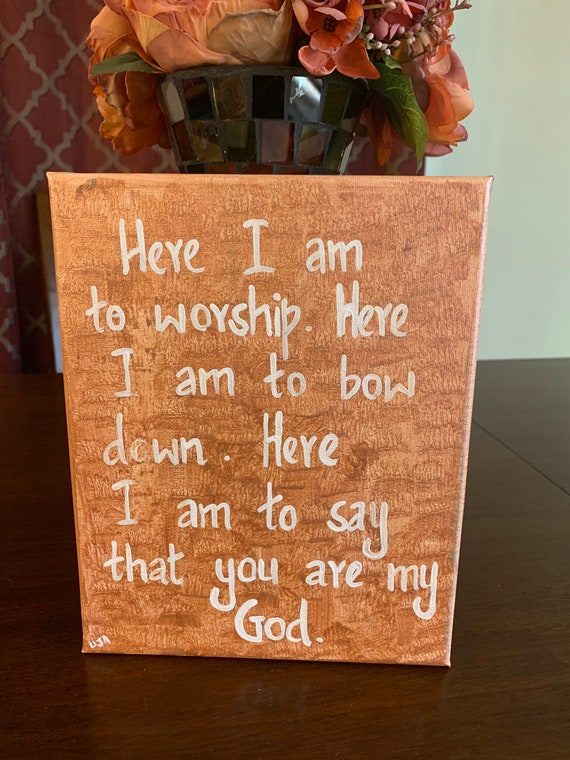 Here I am
to worship. Here
I am to bow
down. Here
I am to say
that you are my
God.